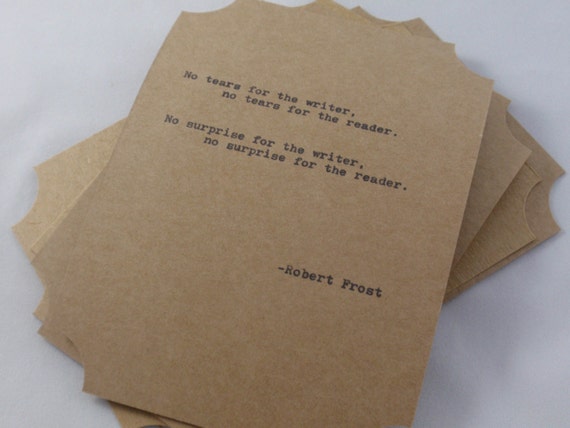 No tears for the writer,
no tears for the reader.
No surprise for the writer,
no surprise for the reader.
-Robert Frost